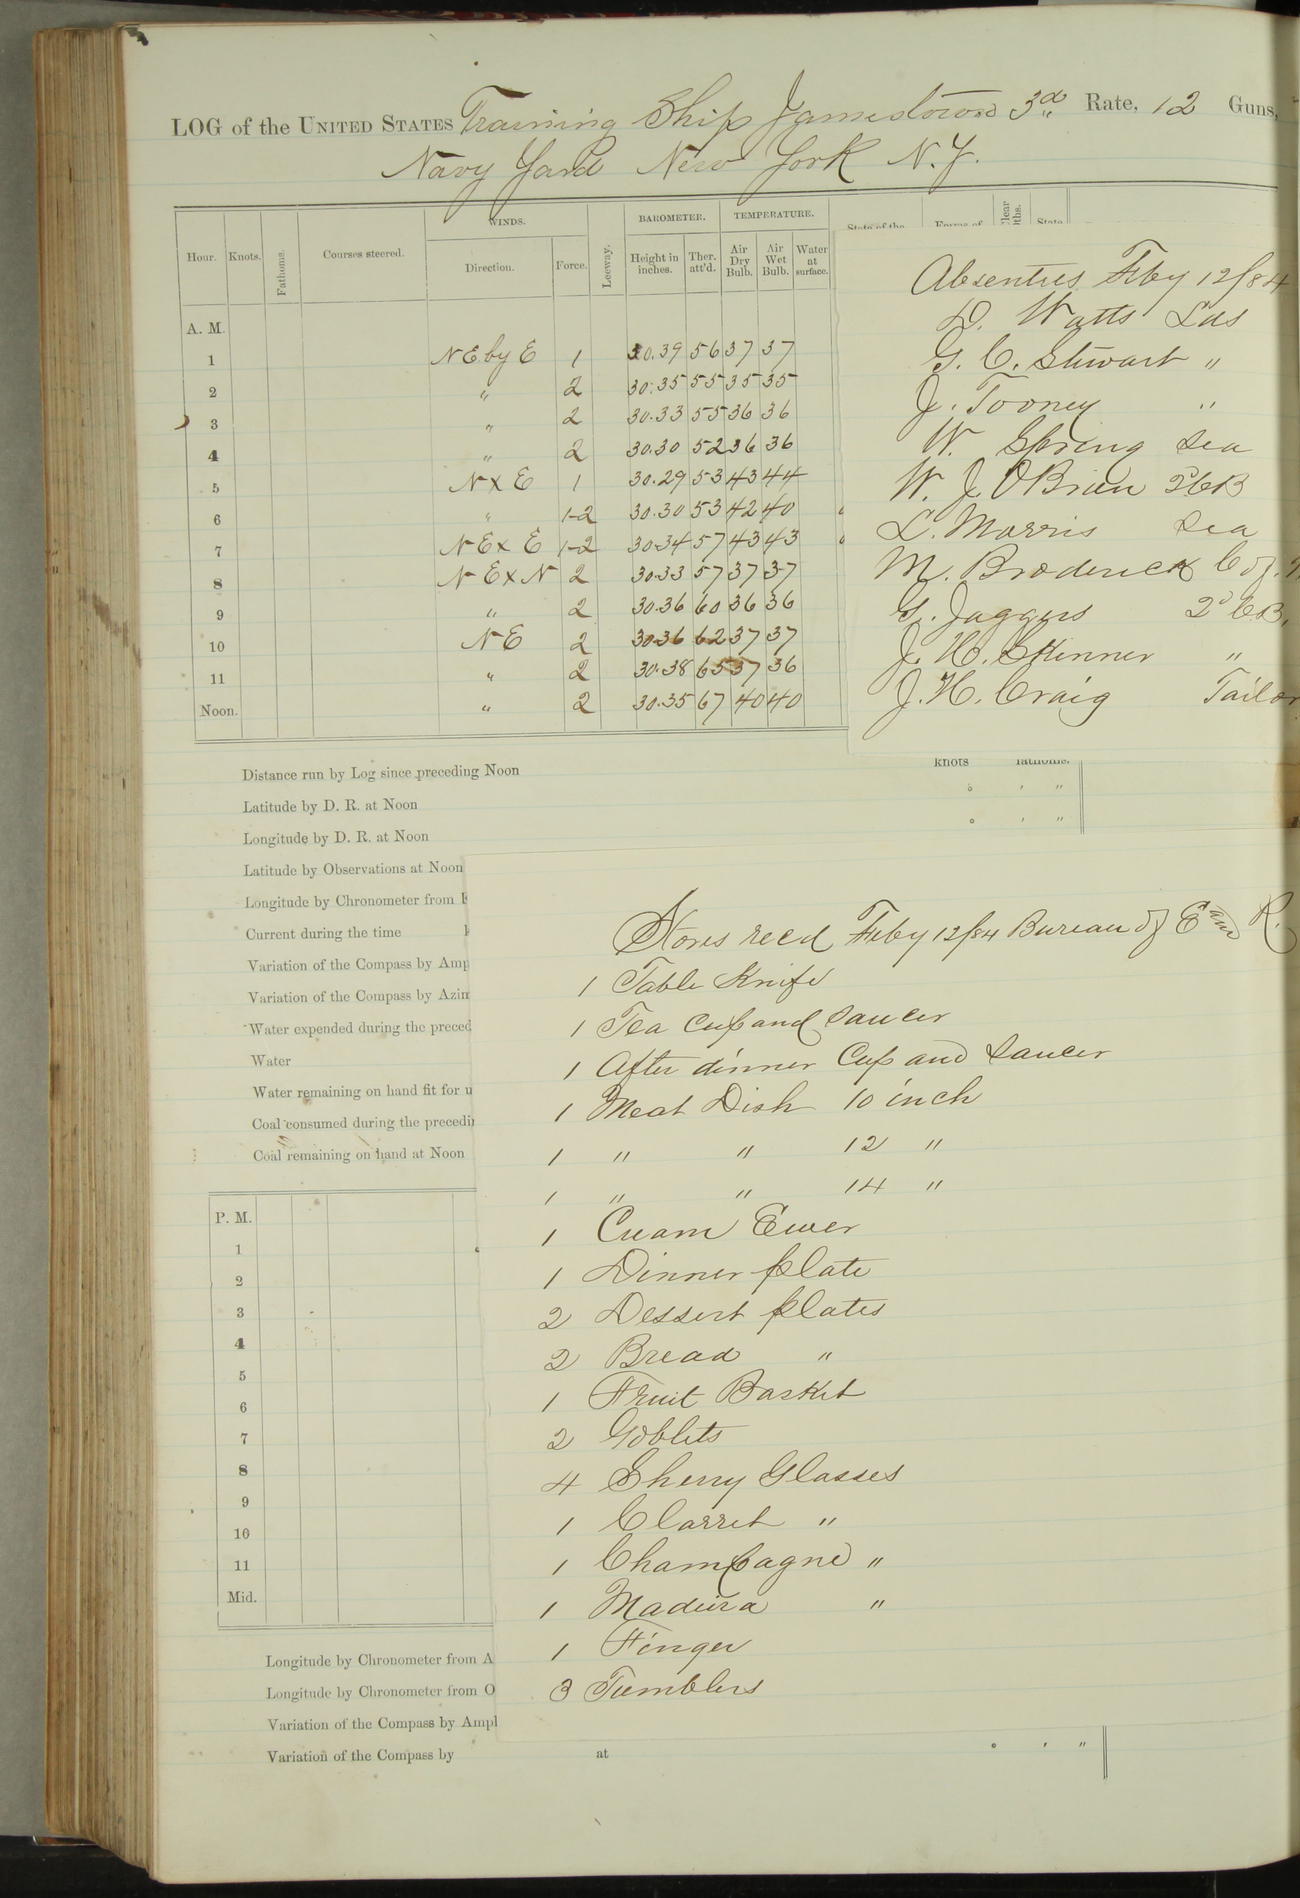 LOG of the UNITED STATES Training Ship Jamestown 3d Rate, 12 Guns,
Navy Yard New York N.Y.
Hour. Knots. Fathoms. Courses steered. WINDS. Direction. Force. Leeway. BAROMETER. Height in inches. Ther. att'd. TEMPERATURE. Air Dry Bulb. Air Wet Bulb. Water at surface.
A. M.
1 NE by E 1 30.39 56 37 37
2 " 2 30.35 55 35 35
3 " 2 30.33 55 36 36
4 " 2 30.30 52 36 36
5 N x E 1 30.29 53 43 44
6 " 1-2 30.30 53 42 40
7 NE x E 1-2 30.34 57 43 43
8 NE x N 2 30.33 57 37 37
9 " 2 30.36 60 36 36
10 NE 2 30.36 62 37 37
11 " 2 30.38 65 37 36
Noon. " 2 30.35 67 40 40
Absentees Feby 12/84
D. Watts Lds
G. C. Stewart "
J. Tooney "
W. Spring Sea
W. J. O'Brien
L. Morris Sea
M. Broderick C of
G. Jaggers 2d CB.
J. H. Skinner "
J. H. Craig Tailor
Distance run by Log since preceding Noon knots fathoms.
Latitude by D. R. at Noon ° ' "
Longitude by D. R. at Noon ° ' "
Latitude by Observations at Noon
Longitude by Chronometer from
Current during the time
Variation of the Compass by Amp
Variation of the Compass by Azim
Water expended during the preced
Water
Water remaining on hand fit for u
Coal consumed during the precedi
Coal remaining on hand at Noon
Stores recd Feby 12/84 Bureau of E and R.
1 Table Knife
1 Tea Cup and Saucer
1 After dinner Cup and Saucer
1 Meat Dish 10 inch
1 " " 12 "
1 " " 14 "
1 Cream Ewer
1 Dinner plate
2 Dessert plates
2 Bread "
1 Fruit Basket
2 Goblets
4 Sherry Glasses
1 Clarret "
1 Champagne "
1 Madeira "
1 Finger
3 Tumblers
P. M.
1
2
3
4
5
6
7
8
9
10
11
Mid.
Longitude by Chronometer from A
Longitude by Chronometer from O
Variation of the Compass by Ampl
Variation of the Compass by at ° ' "